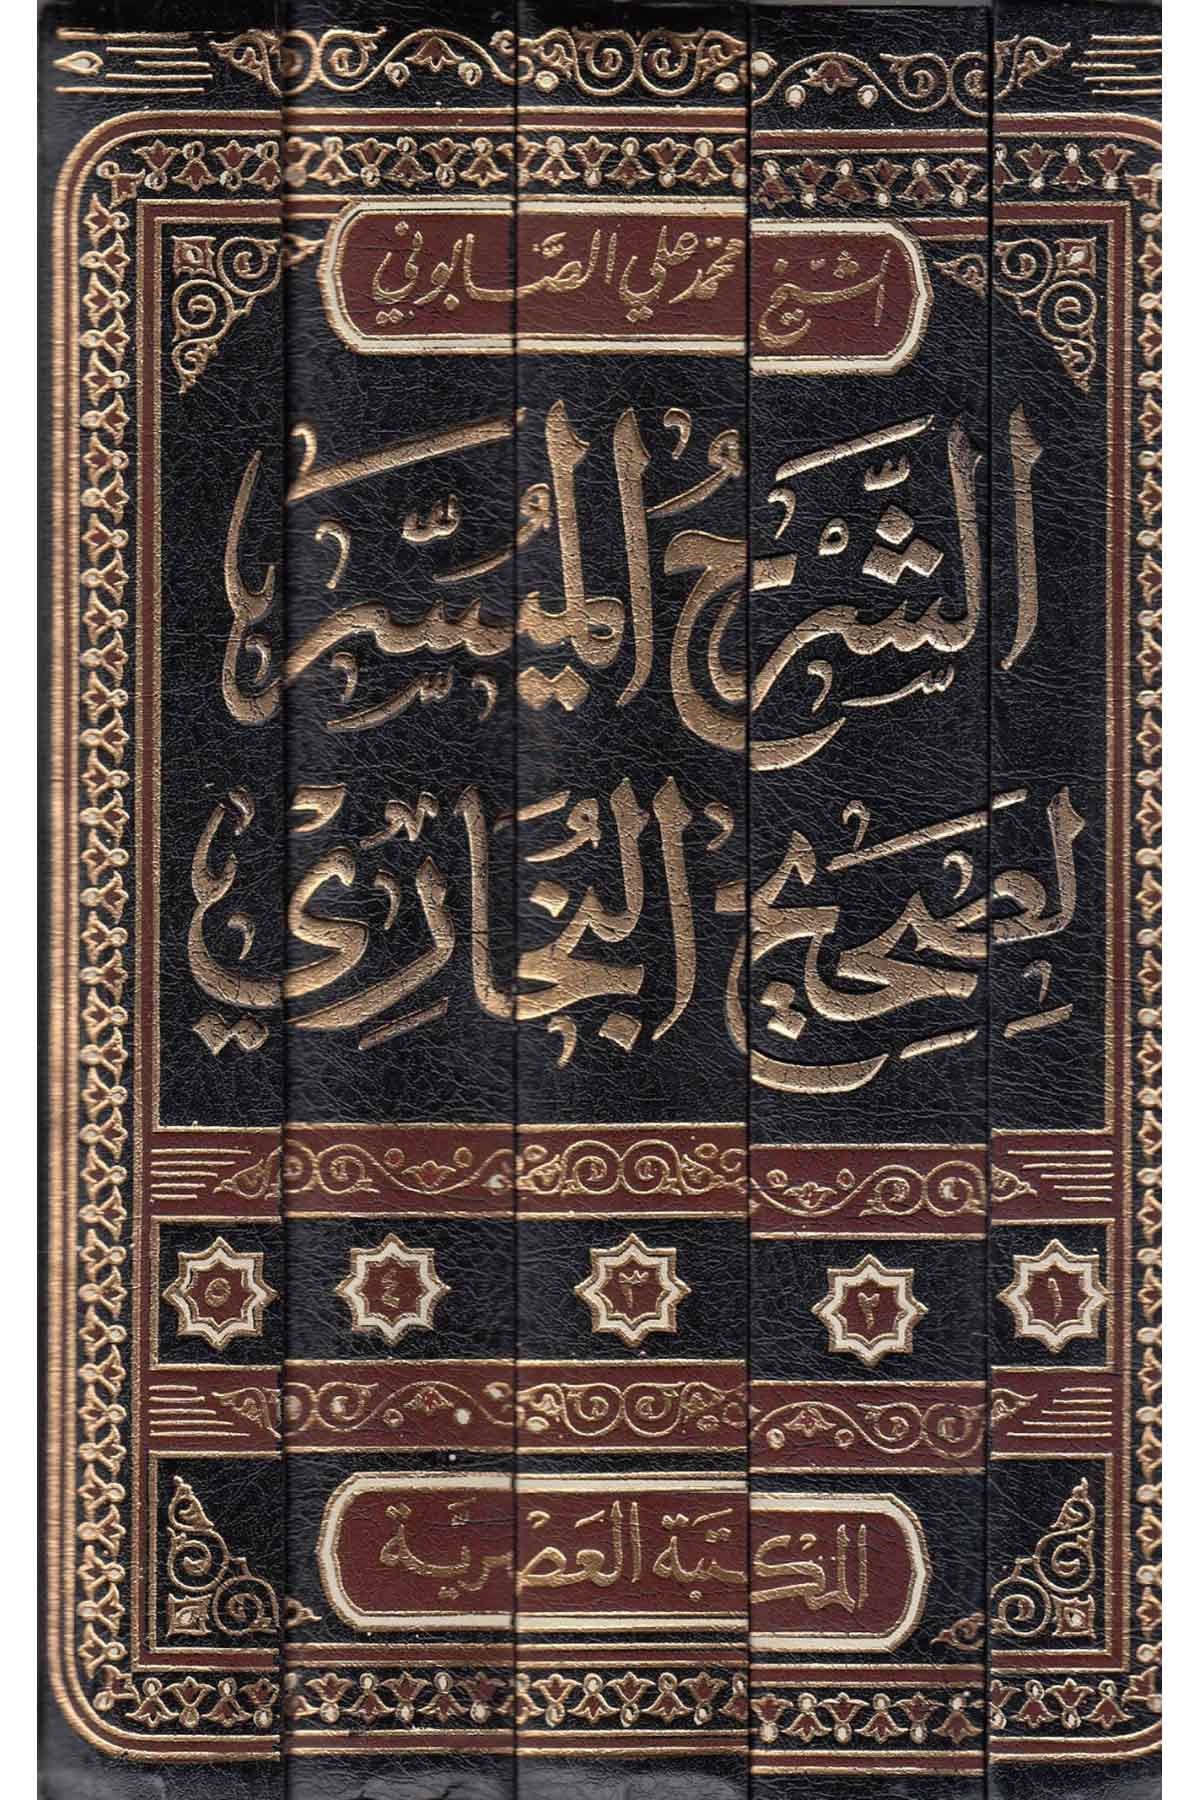 الشيخ محمد علي الصابوني
الشَّرْحُ المُيَسَّر
لِصَحِيحِ البُخَارِي
١ ٢ ٣ ٤ ٥
المكتبة العصرية